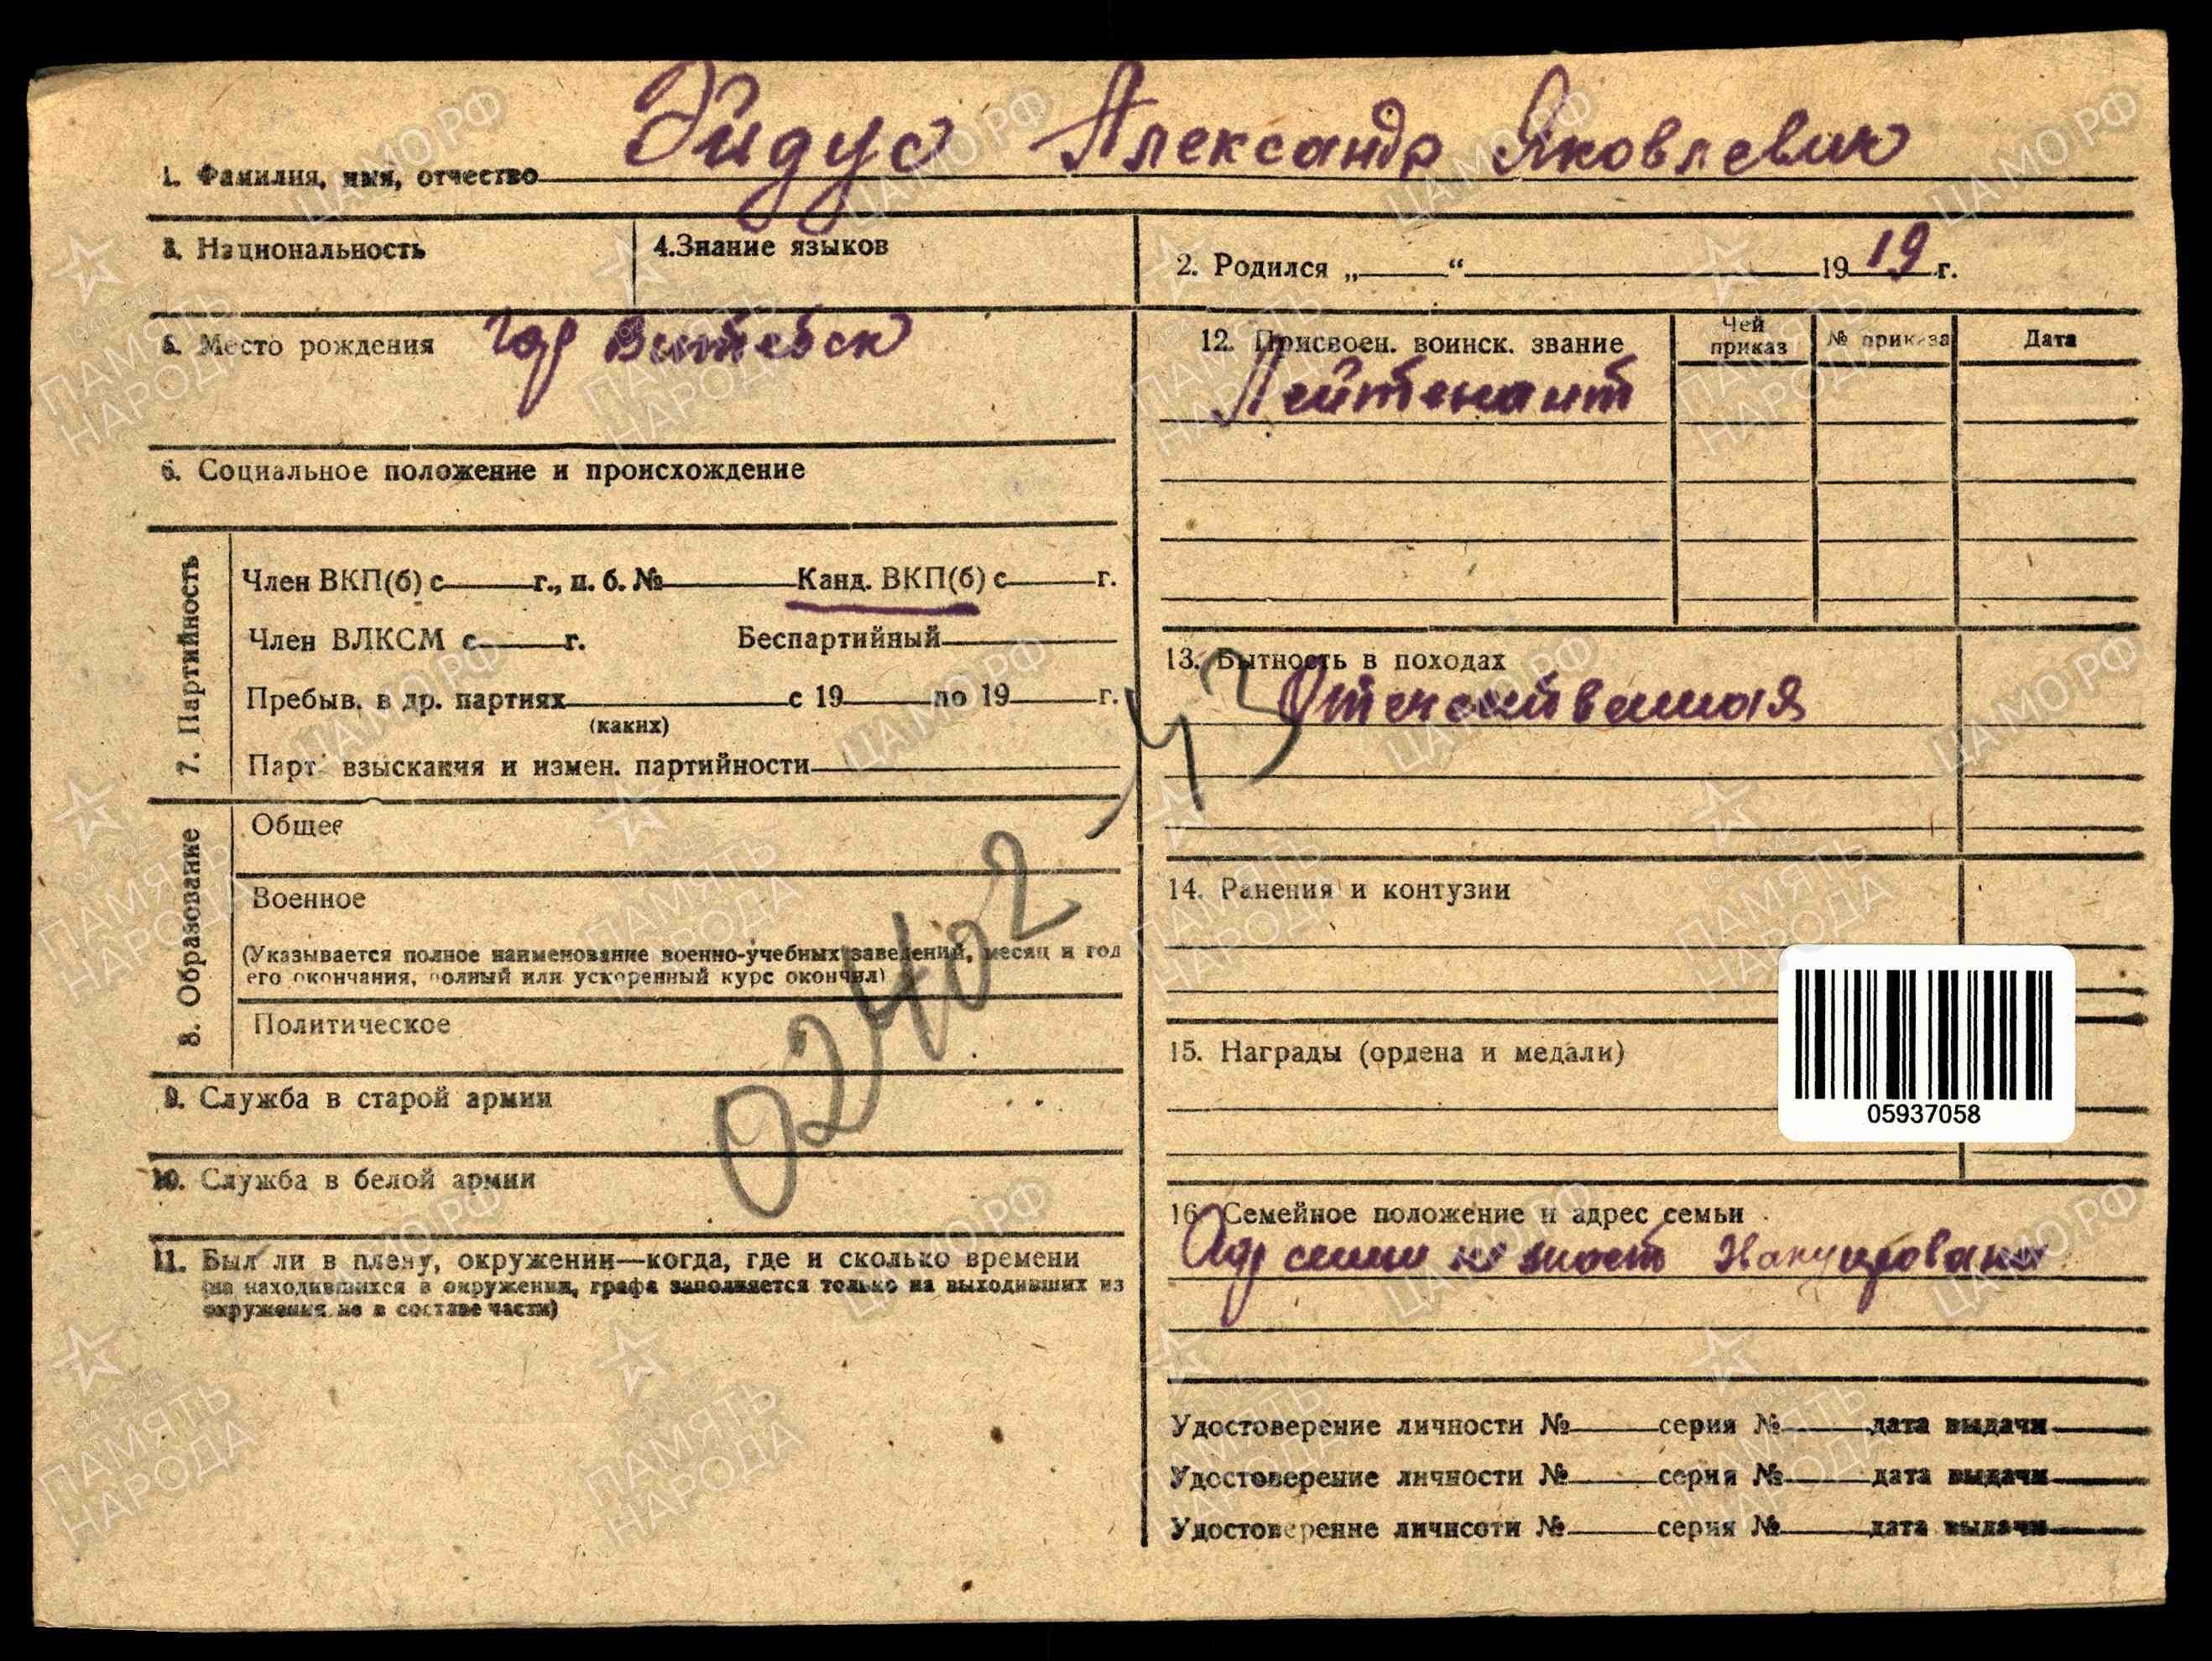 Эйдус Александр Яковлевич
1. Фамилия, имя, отчество
3. Национальность
4.Знание языков
2. Родился „ “ 1919 г.
5. Место рождения гор Витебск
6. Социальное положение и происхождение
7. Партийность
Член ВКП(б) с г., п. б. № Канд. ВКП(б) с г.
Член ВЛКСМ с г. Беспартийный
Пребыв. в др. партиях с 19 по 19 г.
(каких)
Парт взыскания и измен. партийности
8. Образование
Общее
Военное
(Указывается полное наименование военно-учебных заведений, месяц и год
его окончания, полный или ускоренный курс окончил)
Политическое
9. Служба в старой армии
10. Служба в белой армии
11. Был ли в плену, окружении—когда, где и сколько времени
(на находившихся в окружении, графа заполняется только на выходивших из
окружения не в составе части)
02402
43
12. Присвоен. воинск. звание
Чей приказ
№ приказа
Дата
Лейтенант
13. Бытность в походах
Отечественная
14. Ранения и контузии
15. Награды (ордена и медали)
05937058
16. Семейное положение и адрес семьи
Адр семьи не знает Эвакуирована
Удостоверение личности № серия № дата выдачи
Удостоверение личности № серия № дата выдачи
Удостоверение личнсоти № серия № дата выдачи
ЦАМО РФ
ПАМЯТЬ
НАРОДА